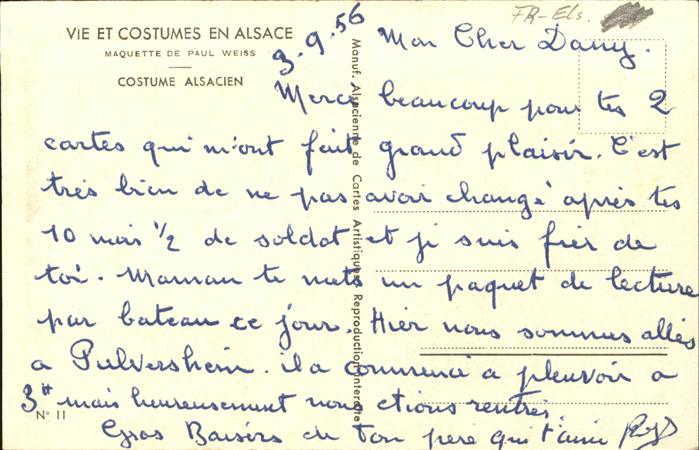 FR-Els.
VIE ET COSTUMES EN ALSACE
MAQUETTE DE PAUL WEISS
COSTUME ALSACIEN
3.9.56
Mon Cher Dany.
Merci beaucoup pour tes 2
cartes qui m'ont fait grand plaisir. C'est
très bien de ne pas avoir changé après tes
10 mois 1/2 de soldat et je suis fier de
toi. Maman te mets un paquet de lecture
par bateau ce jour. Hier nous sommes allés
a Pulversheim. il a commencé a pleuvoir a
3H mais heureusement nous etions rentrés.
Gros Baisers de ton père qui t'aime
Nº 11
Manuf. Alsacienne de Cartes Artistiques Reproduction interdite